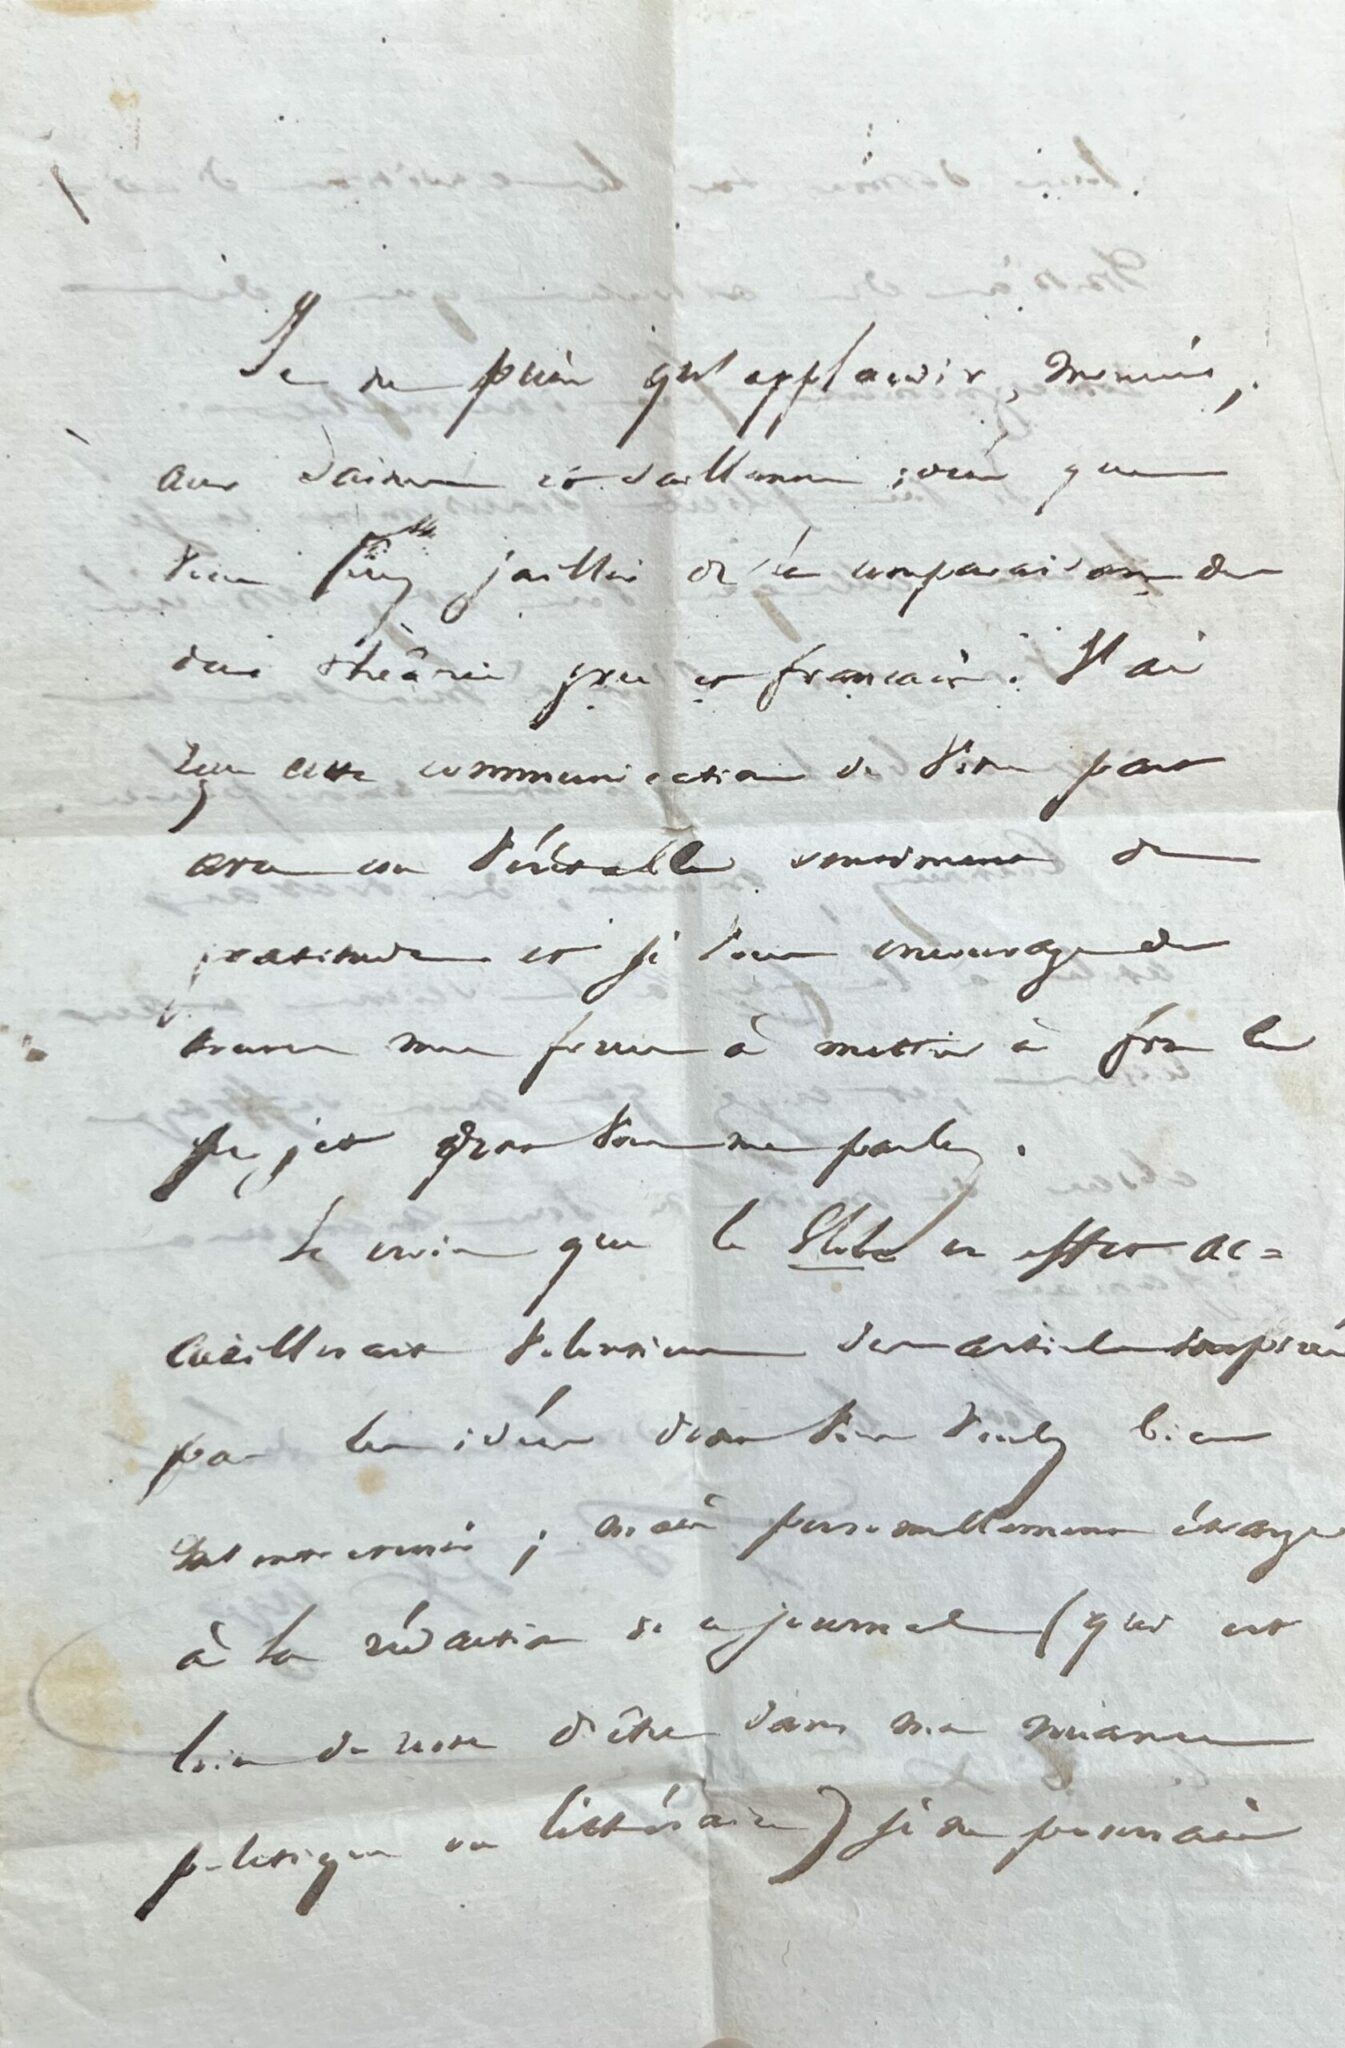 Je ne puis qu'applaudir, Monsieur,
aux saines et vaillantes idées que
vous faites jaillir de la comparaison des
deux théâtres grec et français. J'ai
reçu cette communication de votre part
avec un véritable sentiment de
gratitude et je vous encourage de
toutes mes forces à mettre à fin le
projet dont vous me parlez.
Je crois que le Globe en effet ac=
cueillerait volontiers des articles inspirés
par les idées dont vous voulez bien
m'entretenir ; mais personnellement étranger
à la rédaction de ce journal (qui est
loin du reste d'être dans ma nuance
politique ou littéraire) je ne pourrais